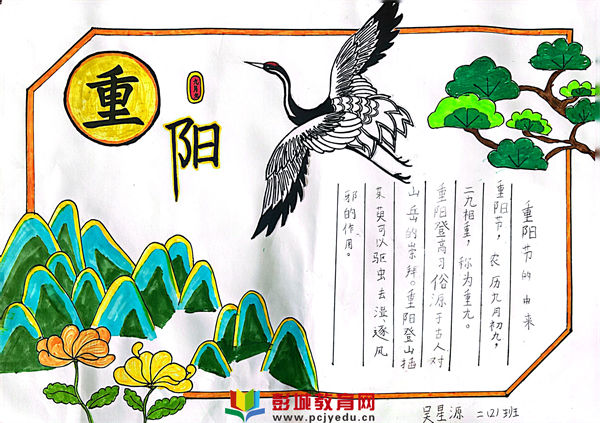 重
阳
九月九
重阳节的由来
重阳节，农历九月初九，
二九相重，称为重九。
重阳登高习俗源于古人对
山岳的崇拜。重阳登山插
茱萸可以驱虫去湿、逐风
邪的作用。
吴星源 二(2)班
彭城教育网
www.pcjyedu.cn